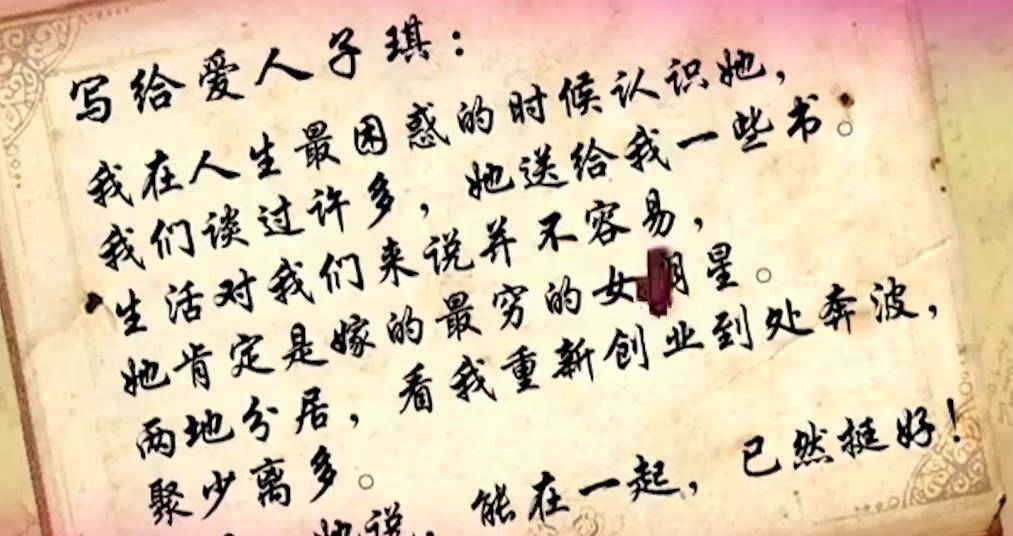 写给爱人子琪：
我在人生最困惑的时候认识她，
我们谈过许多，她送给我一些书。
生活对我们来说并不容易，
她肯定是嫁的最穷的女明星。
两地分居，看我重新创业到处奔波，
聚少离多。
她说，能在一起，已然挺好！